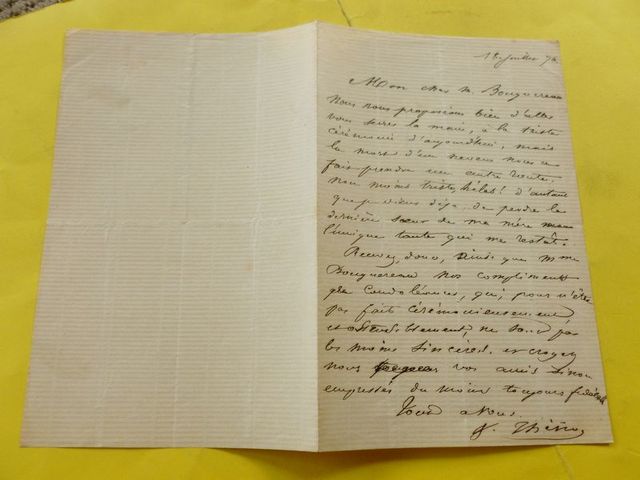 18 Juillet 96
Mon cher M. Bouguereau
Nous nous proposions bien d'aller
vous serrer la main, à la triste
cérémonie d'aujourd'hui, mais
la mort d'un neveu nous a
fait prendre une autre route.
non moins triste, hélas! d'autant
que je viens déjà de perdre la
dernière sœur de ma mère
l'unique tante qui me restât.
Recevez, donc, ainsi que Mme
Bouguereau nos compliments
de condoléances, qui, pour n'être
pas fait cérémonieusement
et officiellement, ne sont pas
les moins sincères. et croyez
nous vos amis sinon
empressés du moins toujours fidèles
Tout à vous.